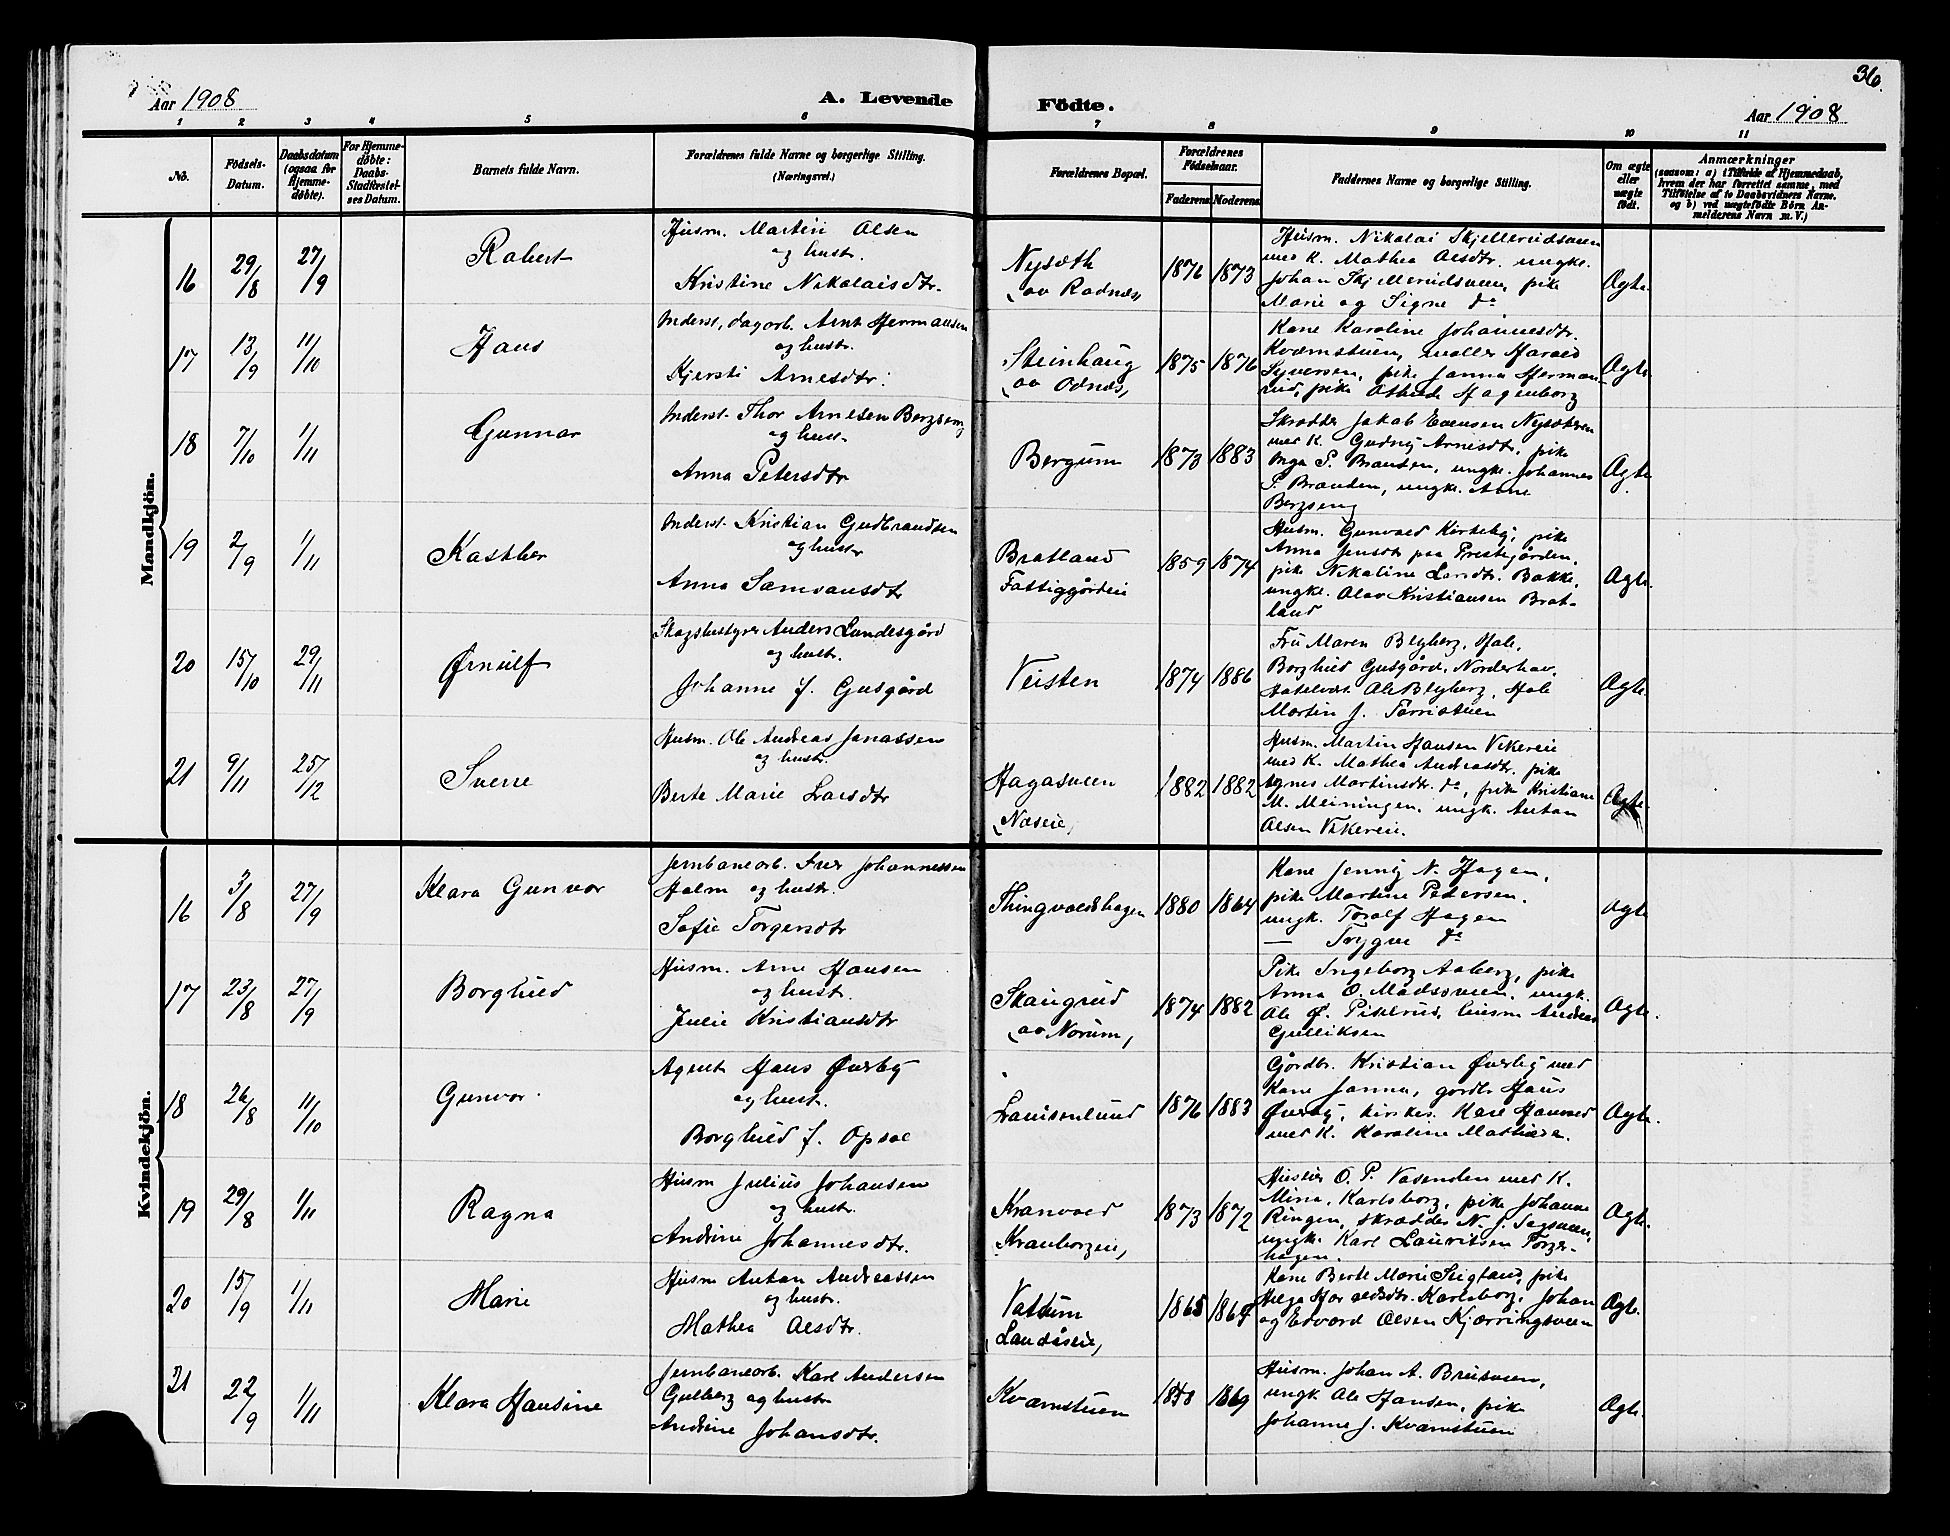 36.
Aar 1908
A. Levende Födte.
Aar 1908
1 2 3 4 5 6 7 8 9 10 11
No.
Födsels-
Datum.
Daabsdatum
(ogsaa for
Hjemme-
døbte).
For Hjemme-
døbte:
Daabs-
Stadfæstel-
ses Datum.
Barnets fulde Navn.
Forældrenes fulde Navne og borgerlige Stilling.
(Næringsvei.)
Forældrenes Bopæl.
Forældrenes
Födselsaar.
Faderens Moderens
Faddernes Navne og borgerlige Stilling.
Om ægte
eller
uægte
födt.
Anmærkninger
(saasom: a) i Tilfælde af Hjemmedaab,
hvem der har forrettet samme, med
Tilföielse af to Daabsvidners Navne,
og b) ved uægtefödte Börn An-
melderens Navn m. V.)
Mandkjön.
16 29/8 27/9 Robert
Husm. Martin Olsen
og hustr.
Kristine Nikolaisdtr.
Nysæth
(av Radnæs)
1876 1873
Husm. Nikolai Skjellerudsveen
med K. Mathea Olsdtr. ungk.
Johan Skjellerudsveen, pike
Marie og Signe do
Ægte.
17 13/9 11/10 Hans
Inderst, dagarb. Arnt Hermansen
og hustr.
Kjersti Arnesdtr.
Steinhaug
(av Odnæs)
1875 1876
Kone Karoline Johannesdtr.
Kværnstuen, møller Harald
Syversen, pike Janna Herman-
rud, pike Hagenborg
Ægte
18 7/10 1/11 Gunnar
Inderst. Thor Arnesen Bergseng
og hust.
Anna Petersdtr
Bergum
1873 1883
Skrædder Jakob Evensen Nysæteren
med K. Gudny Arnesdt, pike
Inga P. Branden, ungk. Johannes
P. Branden, ungk. Arne
Bergseng
Ægte.
19 2/9 1/11 Kastber
Inderst. Kristian Gudbrandsen
og hustr
Anna Samvansdtr
Bratland
Fattiggården
1859 1874
Husm. Gunvald Kirkeby, pike
Anna Jensdt. paa Prestgården,
pike Nikoline Larsdtr. Bakke,
ungk. Olav Kristiansen Brat-
land
Ægte.
20 15/10 29/11 Ørnulf
Skogsbestyrer Anders Landesgård
og hustr.
Johanne f. Gusgård
Veisten
1874 1886
Fru Maren Blyberg, Hole.
Borghild Gusgård, Norderhov.
Ole Blyberg, Hole
Martin J.
Ægte.
21 9/11 25/12 Sverre
Husm. Ole Andreas Jonassen
og hustr.
Berte Marie Larsdtr
Hagasveen
(Næseie)
1882 1882
Husm. Martin Hansen Vikereie
med K. Mathea Andreasdtr. pike
Agnes Martinsdtr. do, pike Kristiane
M. Meiningen, ungk. Anton
Olsen Vikereie.
Ægte.
Kvindekjön.
16 3/8 27/9 Klara Gunvor
Jernbanearb. Iver Johannessen
Holm og hustr.
Sofie Torgersdtr
Thingvoldshagen
1880 1864
Kone Jenny N. Hagen,
pike Martine Petersen.
ungk. Toralf Hagen
— Trygve do
Ægte
17 23/8 27/9 Borghild
Husm. Arne Hansen
og hustr.
Julie Kristiansdtr
Skaugrud
(av Norum)
1874 1882
Pike Ingeborg Aaberg, pike
Anna O. Madssveen, ungk.
Ole Ø. Piselrud, husm Andreas
Gulliksen
Ægte.
18 26/8 11/10 Gunvor.
Agent Hans Øverby
og hustr.
Borghild f. Opsal
Louisenlund
1876 1883
Gårdbr. Kristian Øverby med
Kone Janna, gårdbr Hans
Øverby, kirkes. Kare Hauvad
med K. Karoline Mathisen.
Ægte.
19 29/8 1/11 Ragna
Husm Julius Johansen
og hustr.
Andrine Johannesdtr.
Kranvold
Kranborgeie)
1873 1872
Huseier O. P. Vasenden med K.
Mina, Karlsborg, pike Johanne
Ringen, skrædder N. J. Sagsveen,
ungk. Karl Lauritsen Torger-
hagen.
Ægte.
20 15/9 1/11 Marie
Husm Anton Andreassen
og hustr.
Mathea Olsdtr.
Vattum
(Landåseie)
1865 1864
Kone Berte Marie Sigland, pike
Helga Haraldsdtr. Karlsborg, Johan
og Edvard Olsen Kjærringsveen
Ægte.
21 22/9 1/11 Klara Hansine
Jernbanearb. Karl Andersen
Gulberg og hustr
Andrine Johansdtr.
Kværnstuen
1858 1869
Husm. Johan A. Bruisveen,
ungk Ole Hansen, pike
Johanne J. Kværnstuen
Ægte.